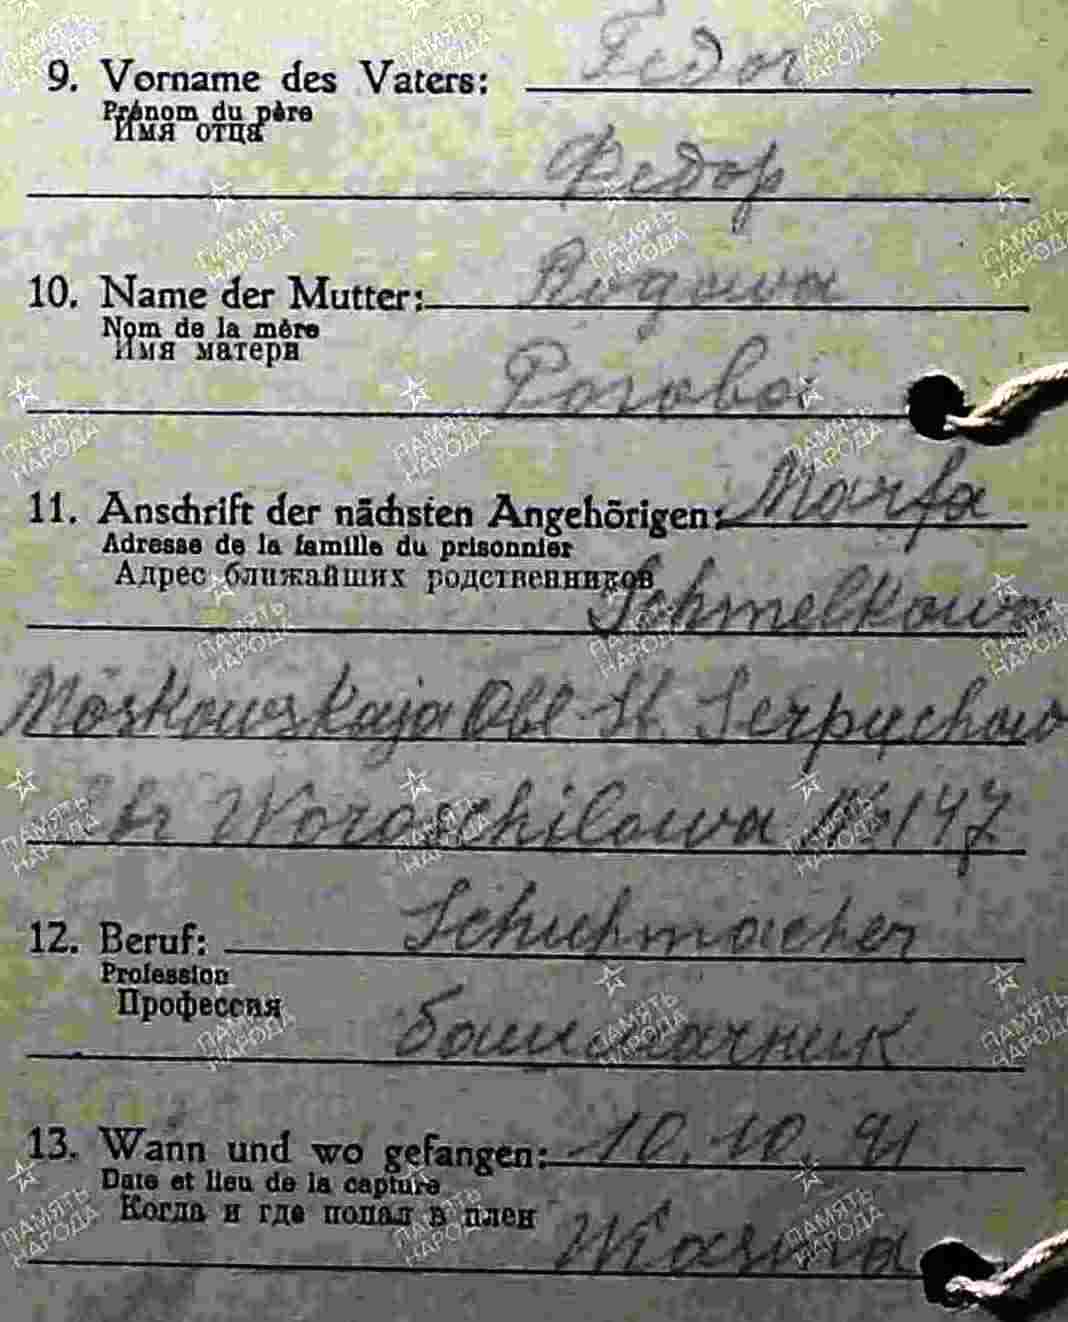 9. Vorname des Vaters: Fedor
Prénom du père
Имя отца
Федор
10. Name der Mutter: Rogowa
Nom de la mère
Имя матери
Рогова
11. Anschrift der nächsten Angehörigen: Marfa
Adresse de la famille du prisonnier
Адрес ближайших родственников
Schmelkowa
Moskowskaja Obl St. Serpuchow
Woroschilowa № 147
12. Beruf: Schuhmacher
Profession
Профессия
башмачник
13. Wann und wo gefangen: 10. 10. 41
Date et lieu de la capture
Когда и где попал в плен
Wiasma
ПАМЯТЬ НАРОДА